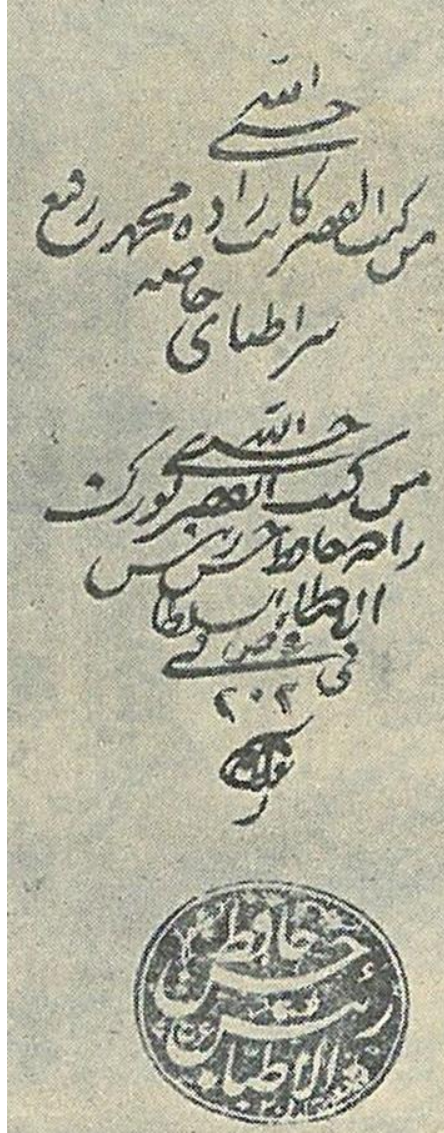 حسبي الله
من كتب الفقير كاتب زاده محمد رفيع
سر اطباى خاصه
حسبي الله
من كتب الفقير كورك
زاده حافظ حسن رئيس
الاطباء السلطا
في
٢٠٢
حافظ
حسن
رئيس
الاطبا